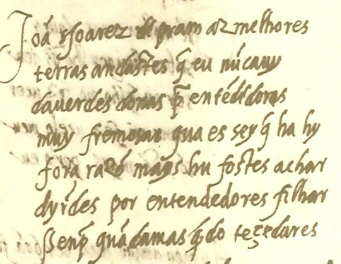 Joã ssoarez de pram as melhores
terras andastes q̃ eu nũca uy
dauerdes donas p̃ entẽdedoras
muy fremosas qua es sey q̃ ha hy
fora razõ mays hu fostes achar
dyrdes por entendedores filhar
ssenp̃ quãdamas q̃do teçedares